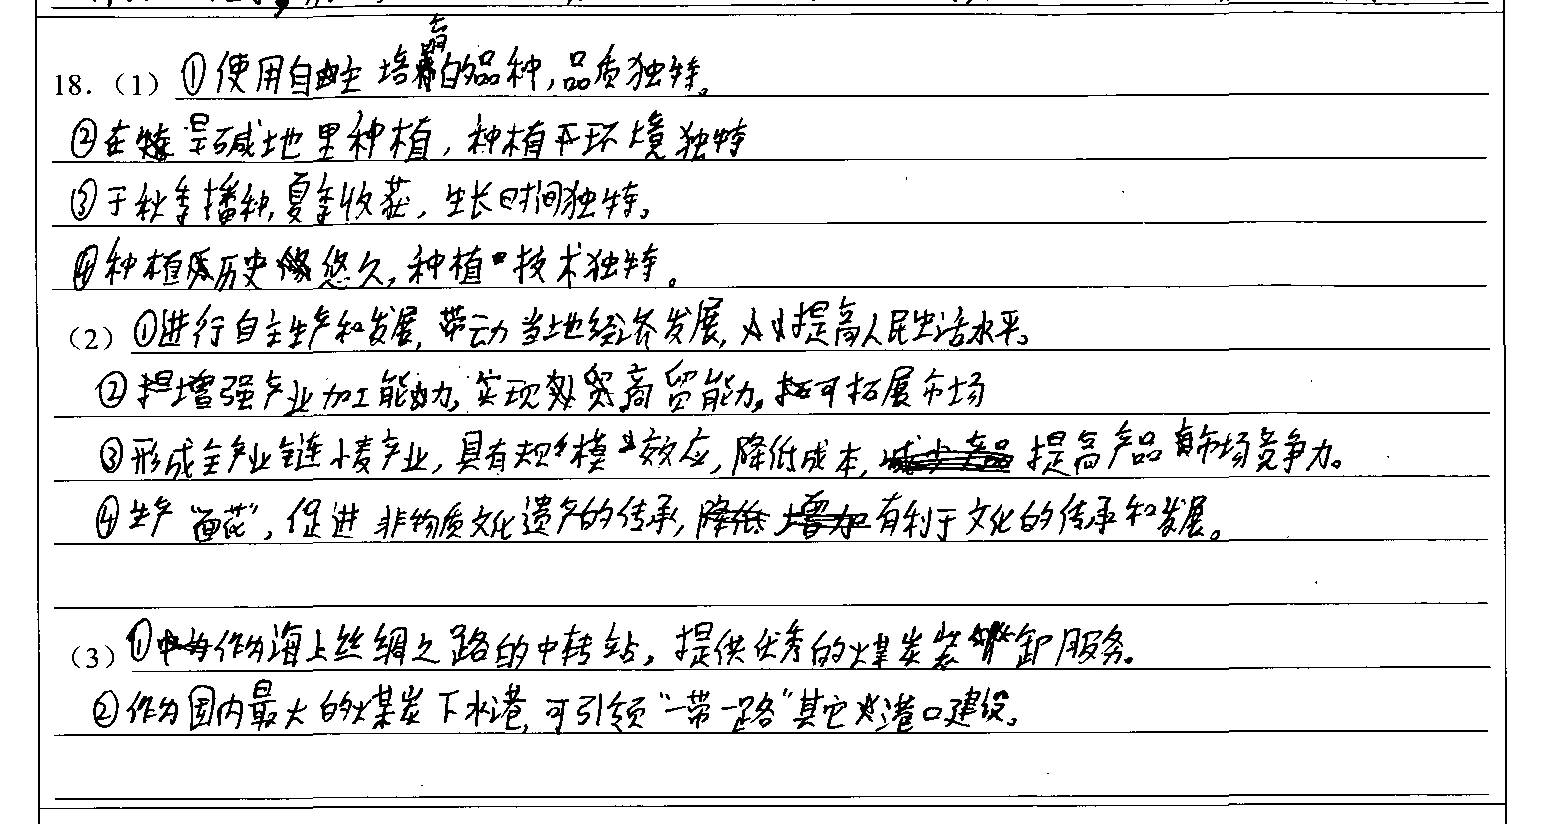 18.（1）①使用自主培育的品种,品质独特。
②在旱碱地里种植,种植环境独特
③于秋季播种,夏季收获,生长时间独特。
④种植历史悠久,种植技术独特。
（2）①进行自主生产和发展,带动当地经济发展,提高人民生活水平。
②增强产业加工能力,实现商贸能力,可拓展市场
③形成全产业链小麦产业,具有规模效应,降低成本,提高产品市场竞争力。
④生产“面花”,促进非物质文化遗产的传承,有利于文化的传承和发展。
（3）①作为海上丝绸之路的中转站,提供优秀的煤炭装卸服务。
②作为国内最大的煤炭下水港,可引领“一带一路”其它港口建设。